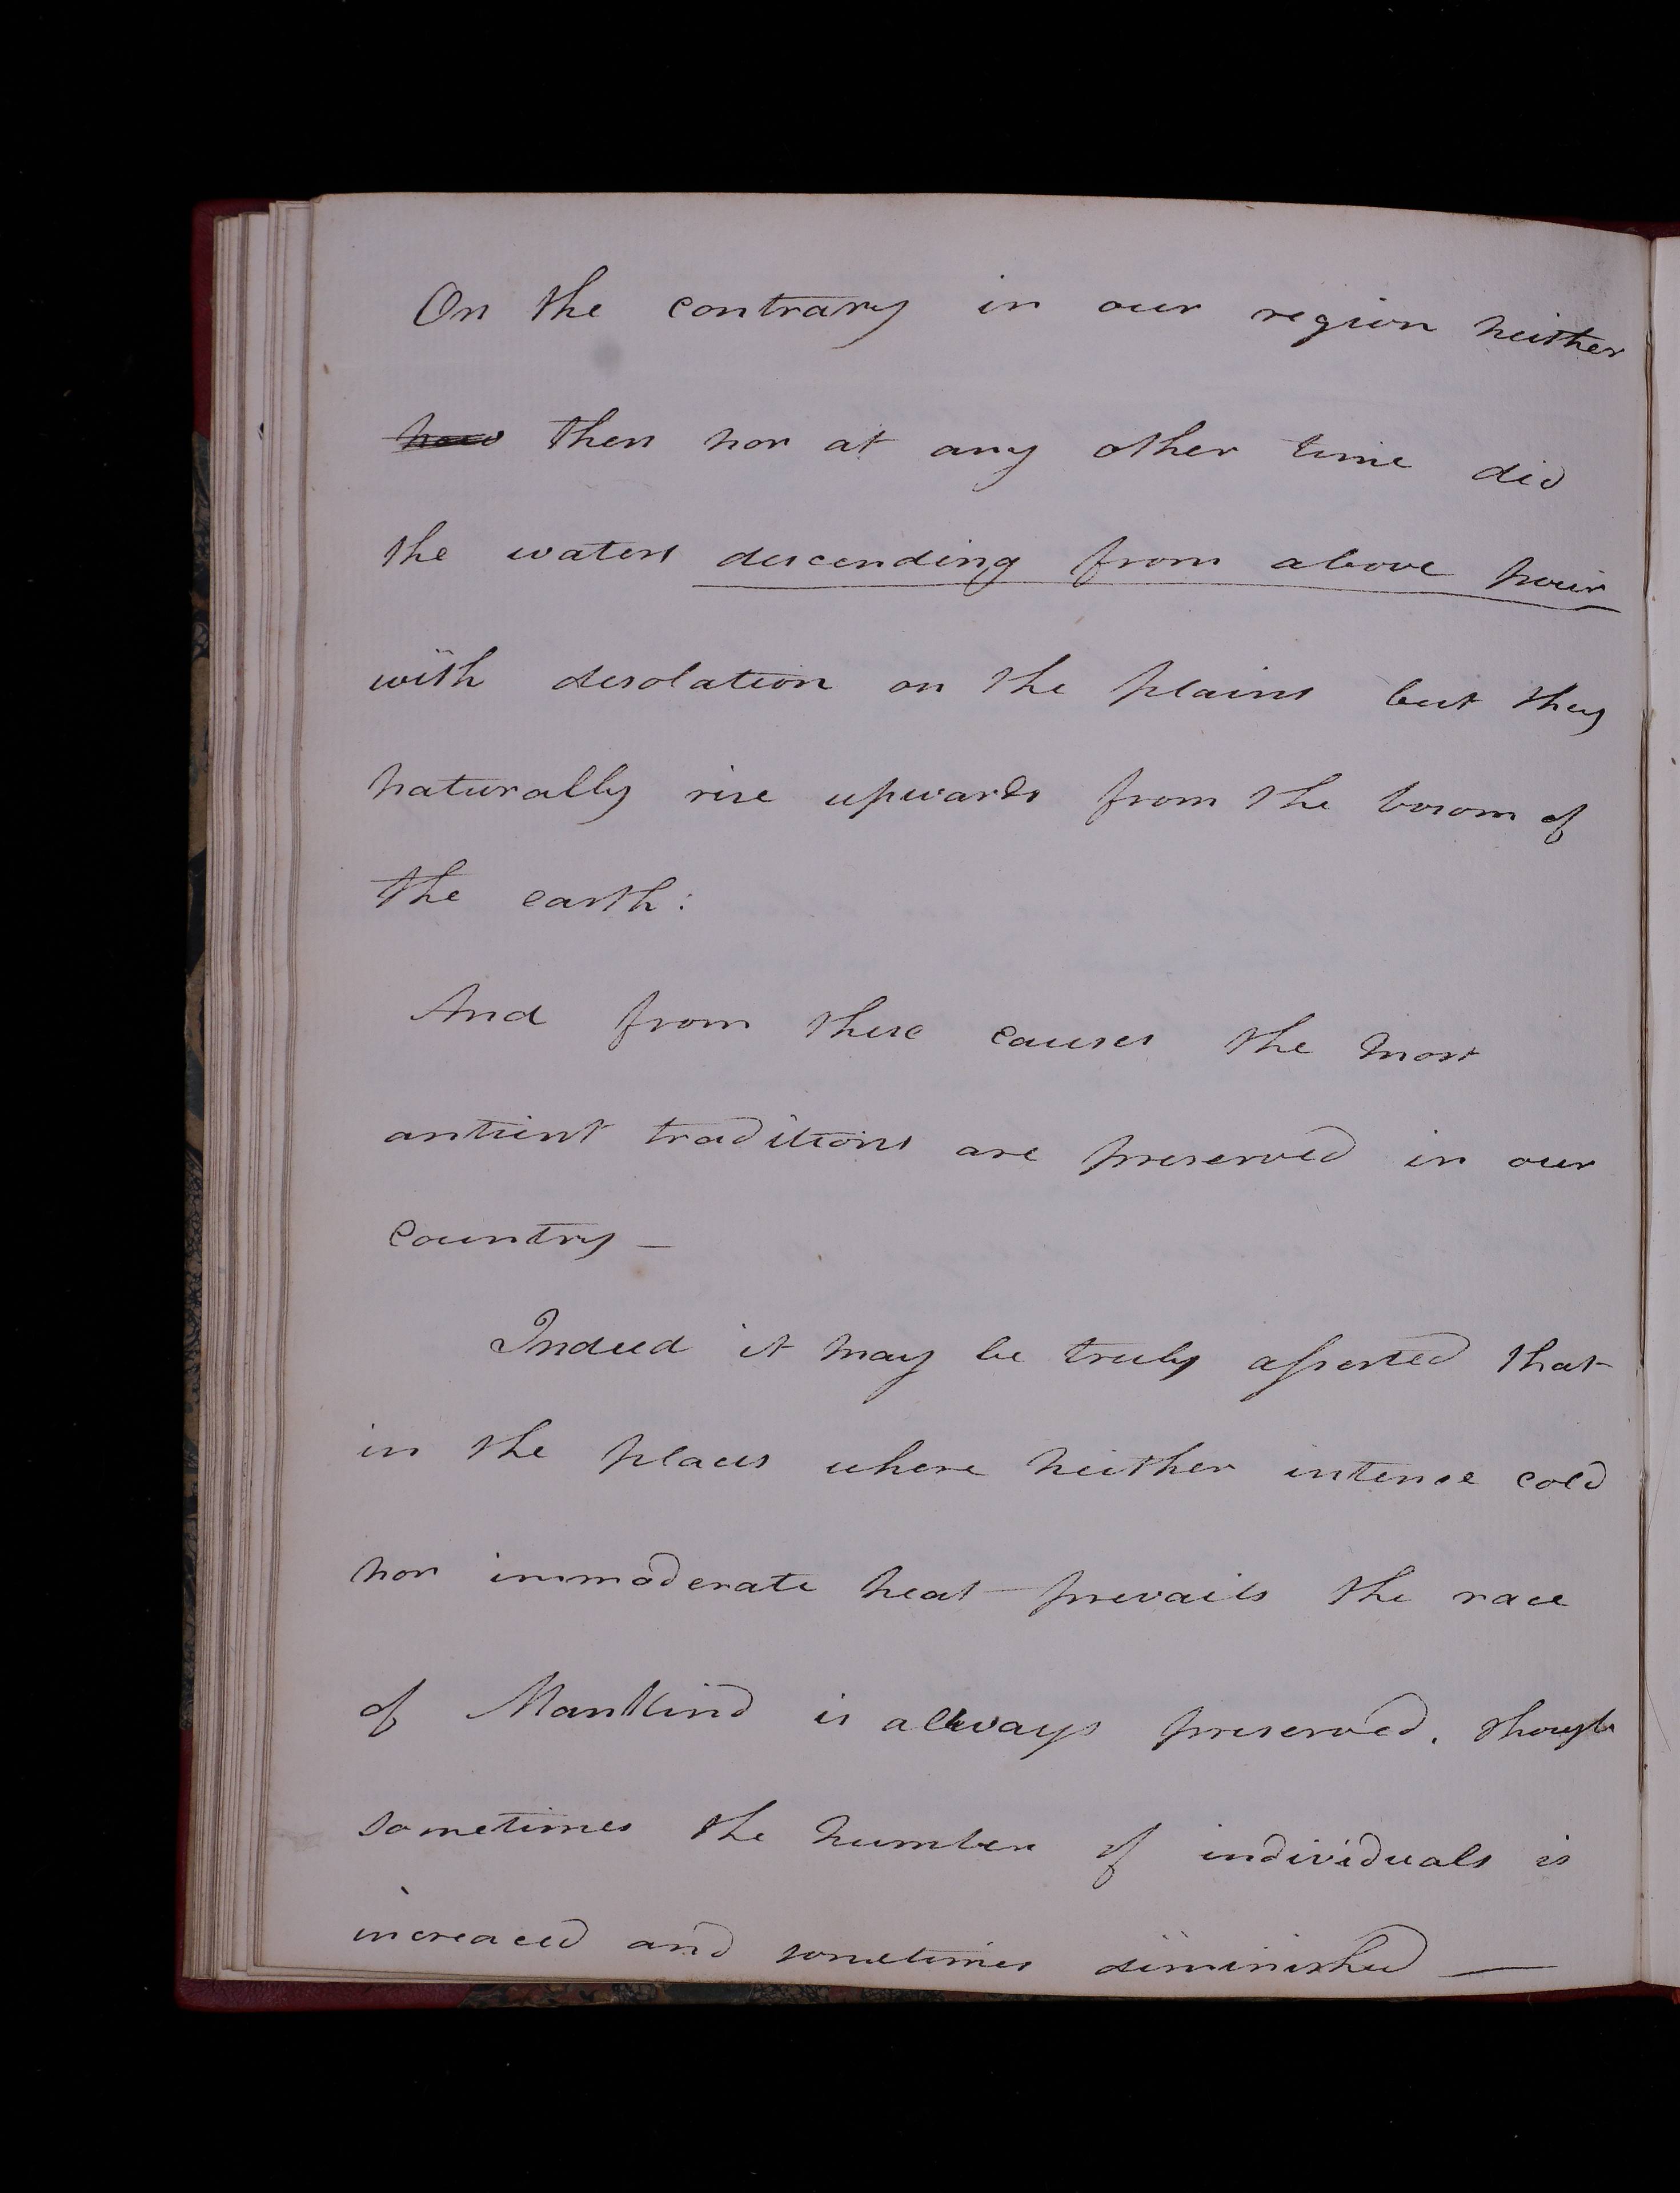 On the contrary in our region neither
now then nor at any other time did
the waters descending from above pour
with desolation on the plains but they
naturally rise upwards from the bosom of
the earth:
And from these causes the most
antient traditions are preserved in our
Country —
Indeed it may be truly asserted that
in the places where neither intense cold
nor immoderate heat prevails the race
of Mankind is always preserved. though
sometimes the number of individuals is
increaced and sometimes diminished —